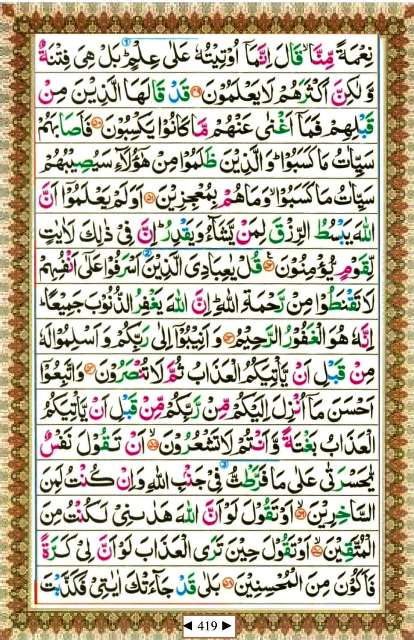 نِعۡمَةً مِّنَّا ۙ قَالَ اِنَّمَاۤ اُوۡتِيۡتُهٗ عَلٰى عِلۡمٍ ؕ بَلۡ هِىَ فِتۡنَةٌ
وَّلٰكِنَّ اَكۡثَرَهُمۡ لَا يَعۡلَمُوۡنَ ﴿۴۹﴾ قَدۡ قَالَهَا الَّذِيۡنَ مِنۡ
قَبۡلِهِمۡ فَمَاۤ اَغۡنٰى عَنۡهُمۡ مَّا كَانُوۡا يَكۡسِبُوۡنَ ﴿۵۰﴾ فَاَصَابَهُمۡ
سَيِّاٰتُ مَا كَسَبُوۡا ؕ وَالَّذِيۡنَ ظَلَمُوۡا مِنۡ هٰٓؤُلَاۤءِ سَيُصِيۡبُهُمۡ
سَيِّاٰتُ مَا كَسَبُوۡا ۙ وَمَا هُمۡ بِمُعۡجِزِيۡنَ ﴿۵۱﴾ اَوَلَمۡ يَعۡلَمُوۡۤا اَنَّ
اللّٰهَ يَبۡسُطُ الرِّزۡقَ لِمَنۡ يَّشَآءُ وَيَقۡدِرُ ؕ اِنَّ فِىۡ ذٰلِكَ لَاٰيٰتٍ
لِّقَوۡمٍ يُّؤۡمِنُوۡنَ ﴿۵۲﴾ قُلۡ يٰعِبَادِىَ الَّذِيۡنَ اَسۡرَفُوۡا عَلٰٓى اَنۡفُسِهِمۡ
لَا تَقۡنَطُوۡا مِنۡ رَّحۡمَةِ اللّٰهِ ؕ اِنَّ اللّٰهَ يَغۡفِرُ الذُّنُوۡبَ جَمِيۡعًا ؕ
اِنَّهٗ هُوَ الۡغَفُوۡرُ الرَّحِيۡمُ ﴿۵۳﴾ وَاَنِيۡبُوۡۤا اِلٰى رَبِّكُمۡ وَاَسۡلِمُوۡا لَهٗ
مِنۡ قَبۡلِ اَنۡ يَّاۡتِيَكُمُ الۡعَذَابُ ثُمَّ لَا تُنۡصَرُوۡنَ ﴿۵۴﴾ وَاتَّبِعُوۡۤا
اَحۡسَنَ مَاۤ اُنۡزِلَ اِلَيۡكُمۡ مِّنۡ رَّبِّكُمۡ مِّنۡ قَبۡلِ اَنۡ يَّاۡتِيَكُمُ
الۡعَذَابُ بَغۡتَةً وَّاَنۡتُمۡ لَا تَشۡعُرُوۡنَ ﴿۵۵﴾ اَنۡ تَقُوۡلَ نَفۡسٌ
يّٰحَسۡرَتٰى عَلٰى مَا فَرَّطْتُّ فِىۡ جَنۡۢبِ اللّٰهِ وَاِنۡ كُنۡتُ لَمِنَ
السّٰخِرِيۡنَ ﴿۵۶﴾ اَوۡ تَقُوۡلَ لَوۡ اَنَّ اللّٰهَ هَدٰٮنِىۡ لَكُنۡتُ مِنَ
الۡمُتَّقِيۡنَ ﴿۵۷﴾ اَوۡ تَقُوۡلَ حِيۡنَ تَرَى الۡعَذَابَ لَوۡ اَنَّ لِىۡ كَرَّةً
فَاَكُوۡنَ مِنَ الۡمُحۡسِنِيۡنَ ﴿۵۸﴾ بَلٰى قَدۡ جَآءَتۡكَ اٰيٰتِىۡ فَكَذَّبۡتَ
◄ 419 ►